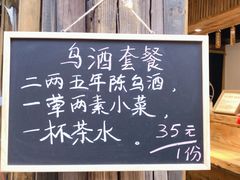 乌酒套餐
二两五年陈乌酒，
一荤两素小菜，
一杯茶水。35元/1份